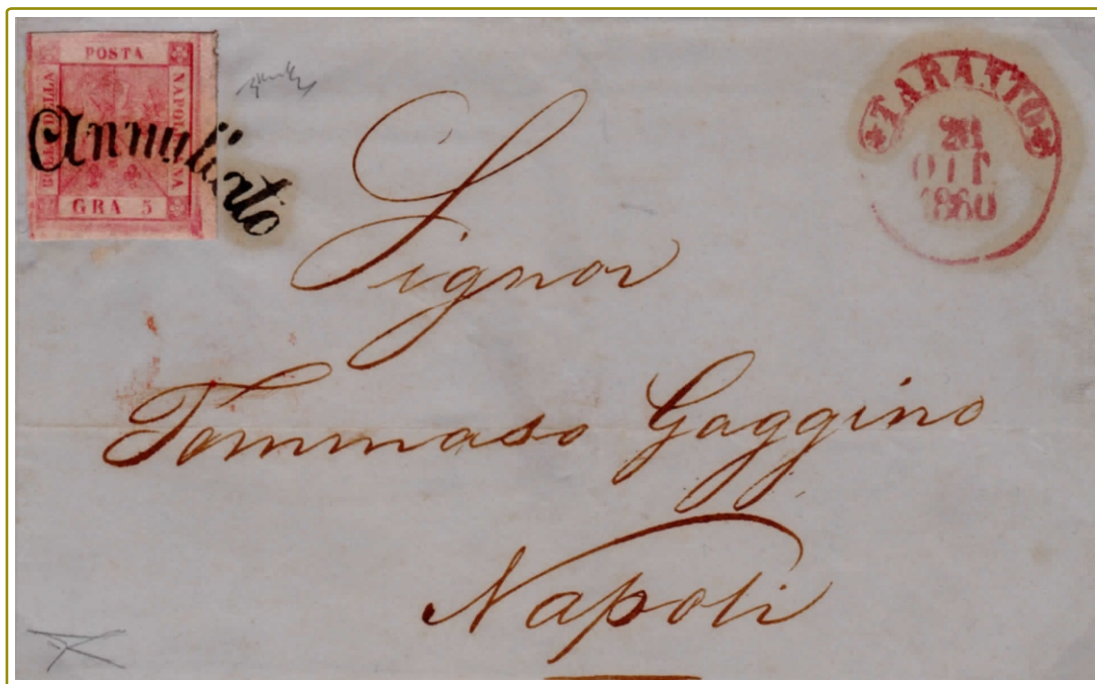 POSTA
NAPOLETANA
BOLLO DELLA
GRA 5
Annullato
TARANTO
OTT
1860
Signor
Tommaso Gaggino
Napoli